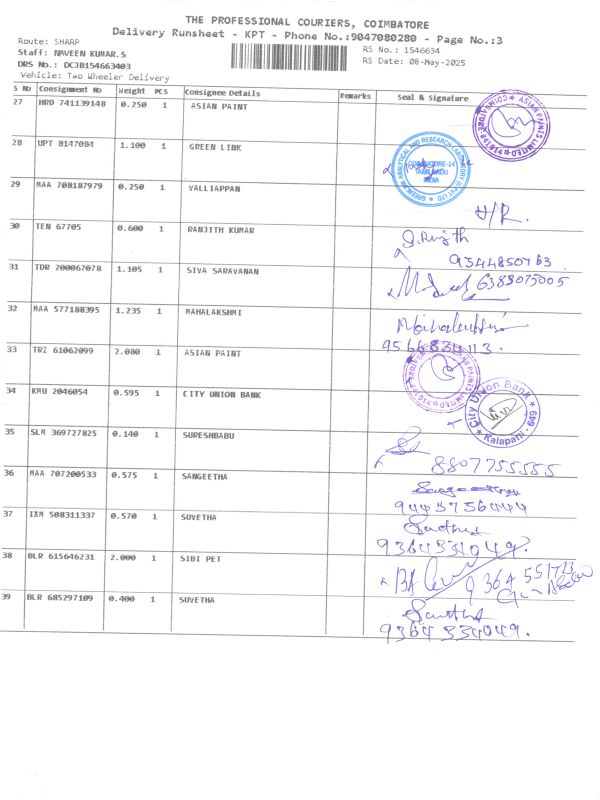 THE PROFESSIONAL COURIERS, COIMBATORE
Delivery Runsheet - KPT - Phone No.:9047080280 - Page No.:3
Route: SHARP
RS No.: 1546634
Staff: NAVEEN KUMAR.S
RS Date: 08-May-2025
DRS No.: DCJB154663403
Vehicle: Two Wheeler Delivery
S No Consignment No Weight PCS Consignee Details Remarks Seal & Signature
27 HRD 741139148 0.250 1 ASIAN PAINT
ASIAN PAINTS LIMITED
28 UPT 8147084 1.100 1 GREEN LINK
COIMBATORE-14
TAMILNADU
INDIA
29 MAA 708187979 0.250 1 VALLIAPPAN
H/R.
30 TEN 67705 0.600 1 RANJITH KUMAR
9344850763
31 TDR 200067078 1.105 1 SIVA SARAVANAN
6383075005
32 MAA 577188395 1.235 1 MAHALAKSHMI
33 TRZ 61062099 2.080 1 ASIAN PAINT
ASIAN PAINTS LIMITED
34 KMU 2046054 0.595 1 CITY UNION BANK
City Union Bank
Kalapatti - 649
35 SLM 369727825 0.140 1 SURESHBABU
8807755555
36 MAA 707200533 0.575 1 SANGEETHA
9443756444
37 IXM 508311337 0.570 1 SUVETHA
9364334049.
38 BLR 615646231 2.000 1 SIBI PET
39 BLR 685297109 0.400 1 SUVETHA
9364334049.